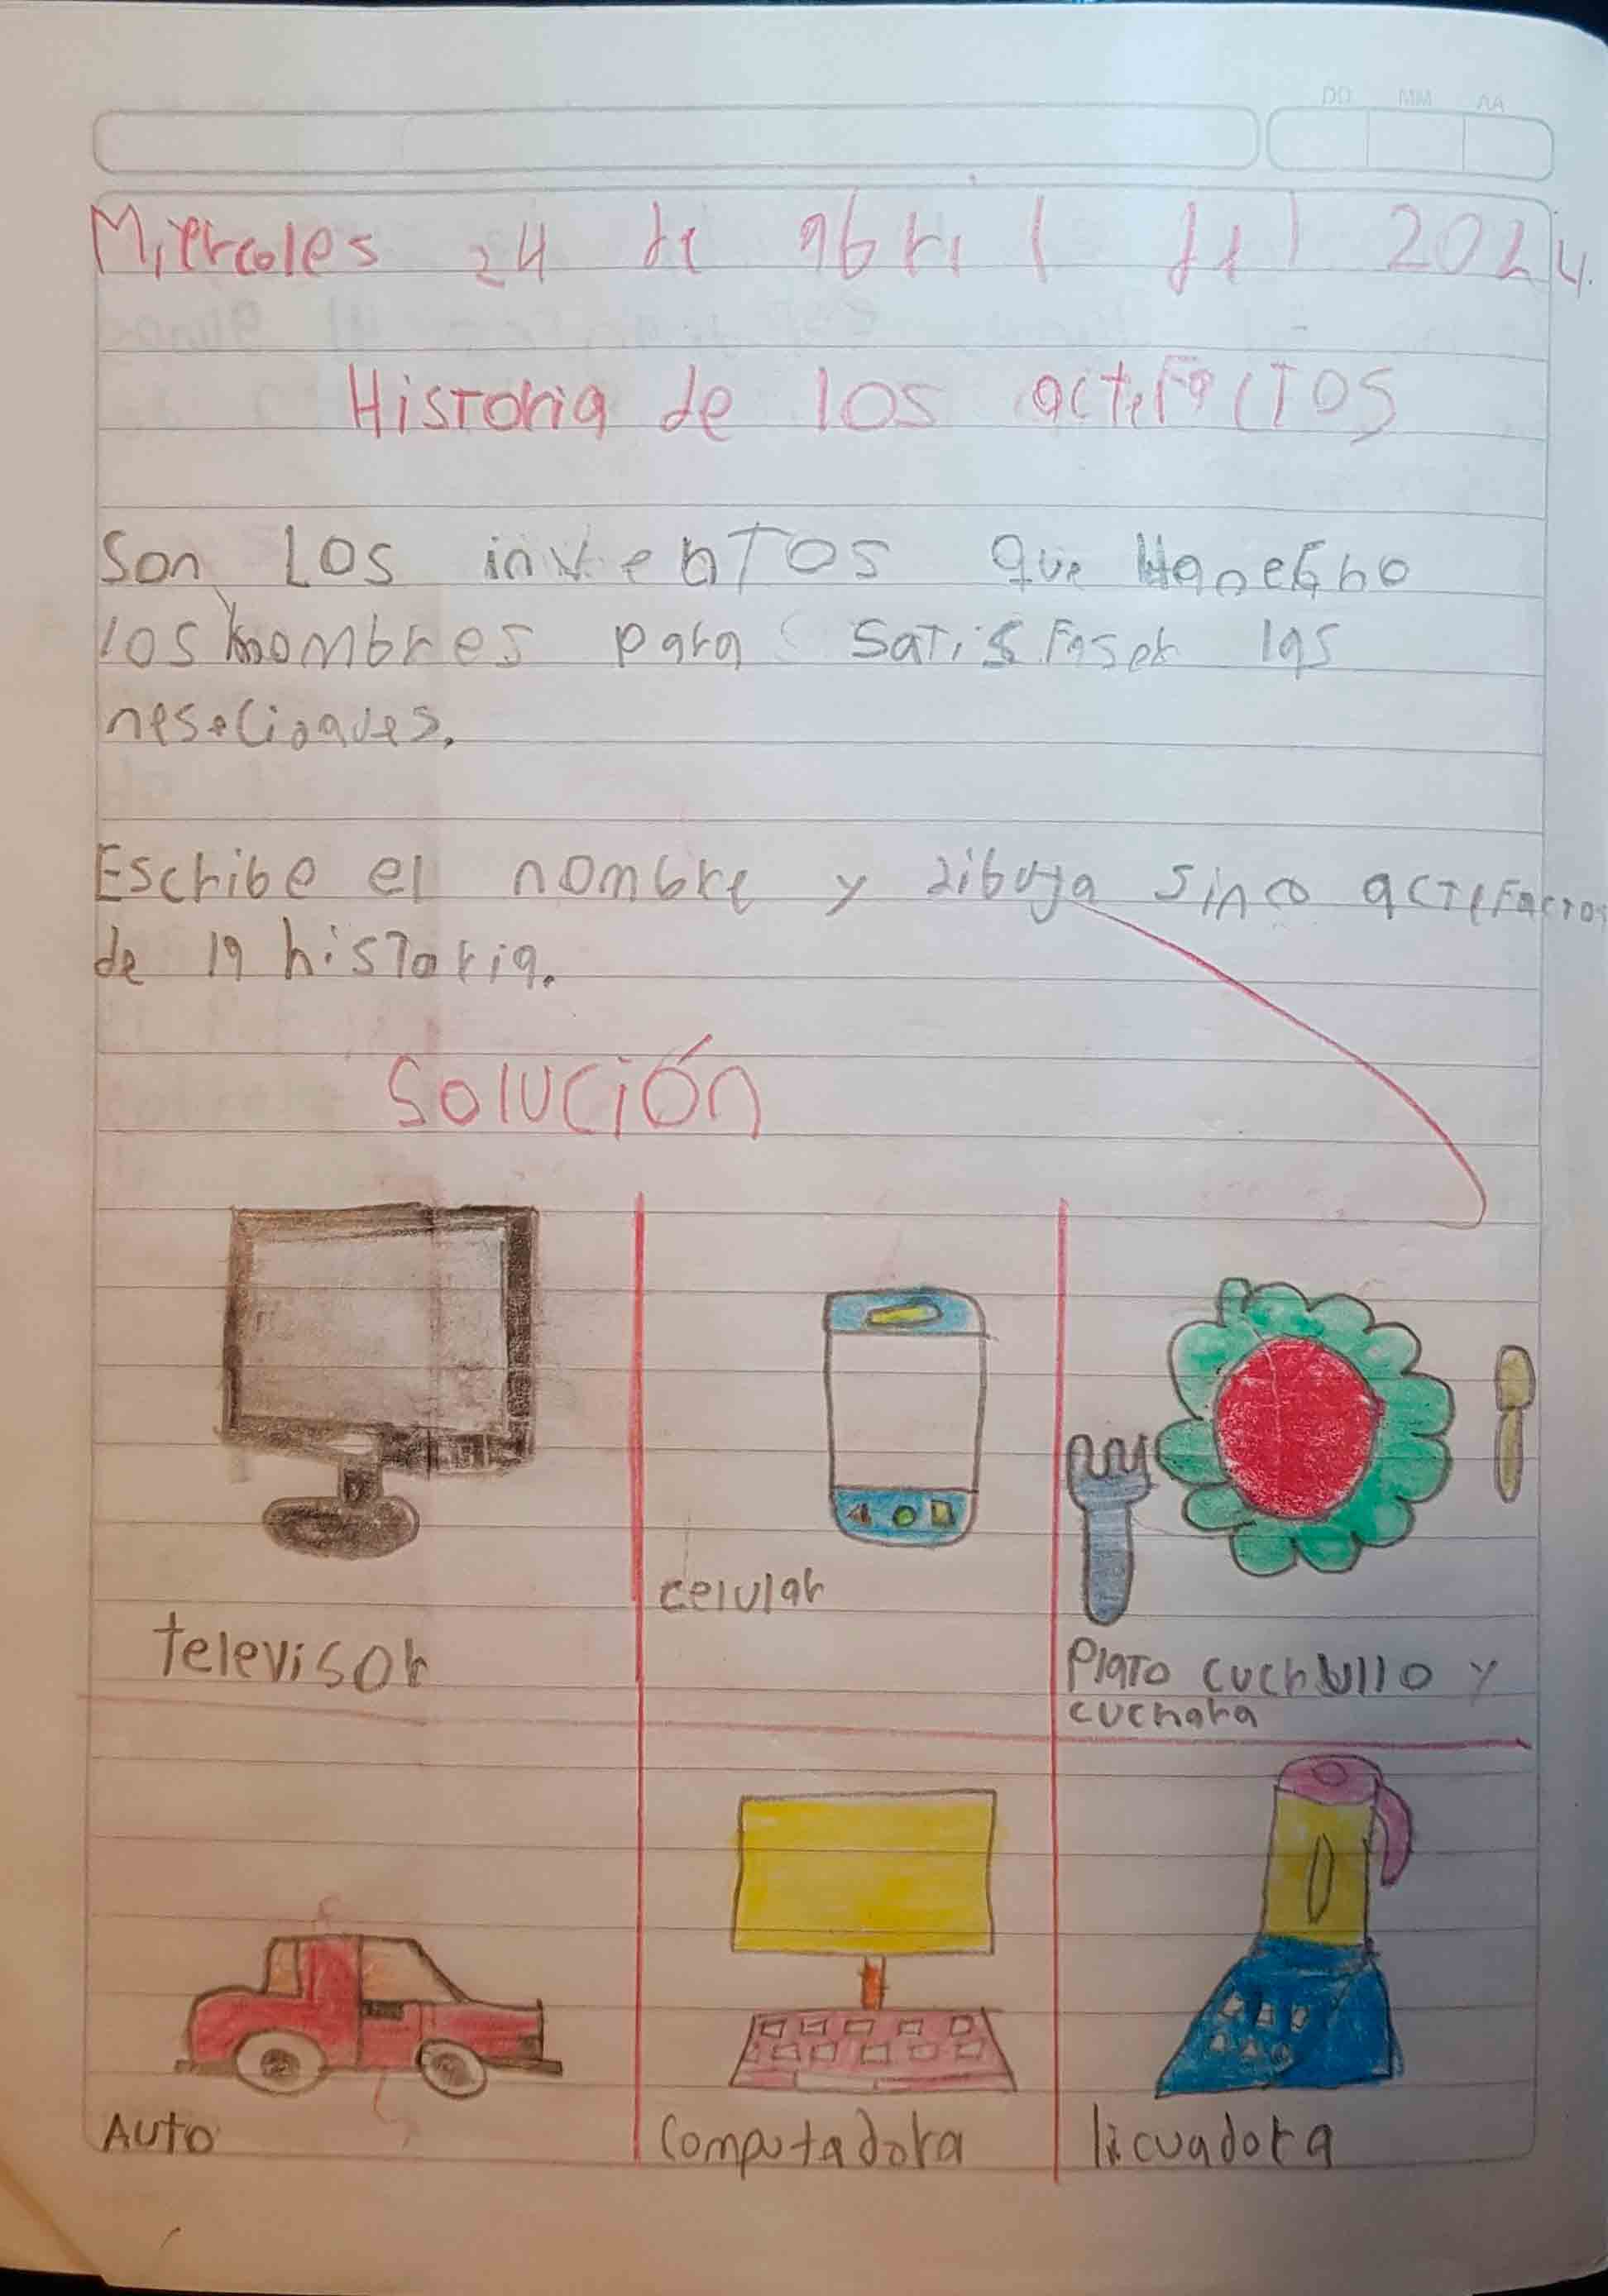 DD MM AA
Miercoles 24 de abril del 2024.
Historia de los actefactos
Son Los inventos que Hanecho
los hombres para satisfaser las
Escribe el nombre y dibuja sinco actefactos
de la historia.
Solución
televisor
celular
Plato cuchullo y
cuchara
Auto
Computadora
licuadora